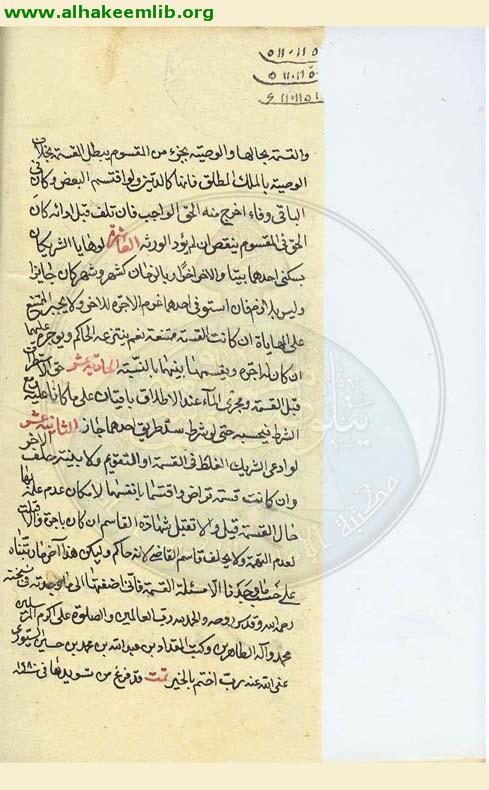 www.alhakeemlib.org
والقسمة بحالها والوصية بجزء من المقسوم يبطل القسمة بخلاف
الوصية بالمال المطلق فانها كالدين ولو اقتسم البعض وكان في
الباقى وفاء اخرج منه الحق الواجب فان تلف قبل ادائه كان
الحق في المقسوم ينقص ان لم يؤد الورثة العاشرة لو هايا الشريكان
بسكنى احدهما بيتا والاخر اخر او بالزمان كشهر وشهر كان جايزا
وليس بلازم فان استوفى احدهما غرم الاجرة للاخر ولا يجبر الممتنع
على المهاياة ان كانت القسمة ممتنعة نعم ينتزعه الحاكم ويوجره عليهما
ان كان له اجرة ويقسمها بينهما بالنسبة الحادية عشر حق الاستطراق
قبل القسمة ومجرى الماء عند الاطلاق باقيان على ما كانا عليه ومع
الشرط بحسبه حتى لو شرط سد طريق احدهما جاز الثانية عشر
لو ادعى الشريك الغلط في القسمة او التقويم ولا بينة حلف الاخر
وان كانت قسمة تراض واقتسما بانفسهما لامكان عدم علمه بها
حال القسمة وقيل ولا تقبل شهادة القاسم ان كان باجرة والا قبلت
لعدم التهمة ولا يحلف قاسم القاضى لانه حاكم وليكن هذا آخر ما رتبناه
على حسب ما وجدنا الا مسئلة القسمة فانا اضفناها الى ما وجدته في نسخته
رحمه الله وقدس روحه والحمد لله رب العالمين والصلوة على اكرم المرسلين
محمد وآله الطاهرين وكتب المقداد بن عبد الله بن محمد بن حسين السيورى
عفى الله عنه رب اختم بالخير تمت قد فرغ من تسويدها فى ٩٨٠